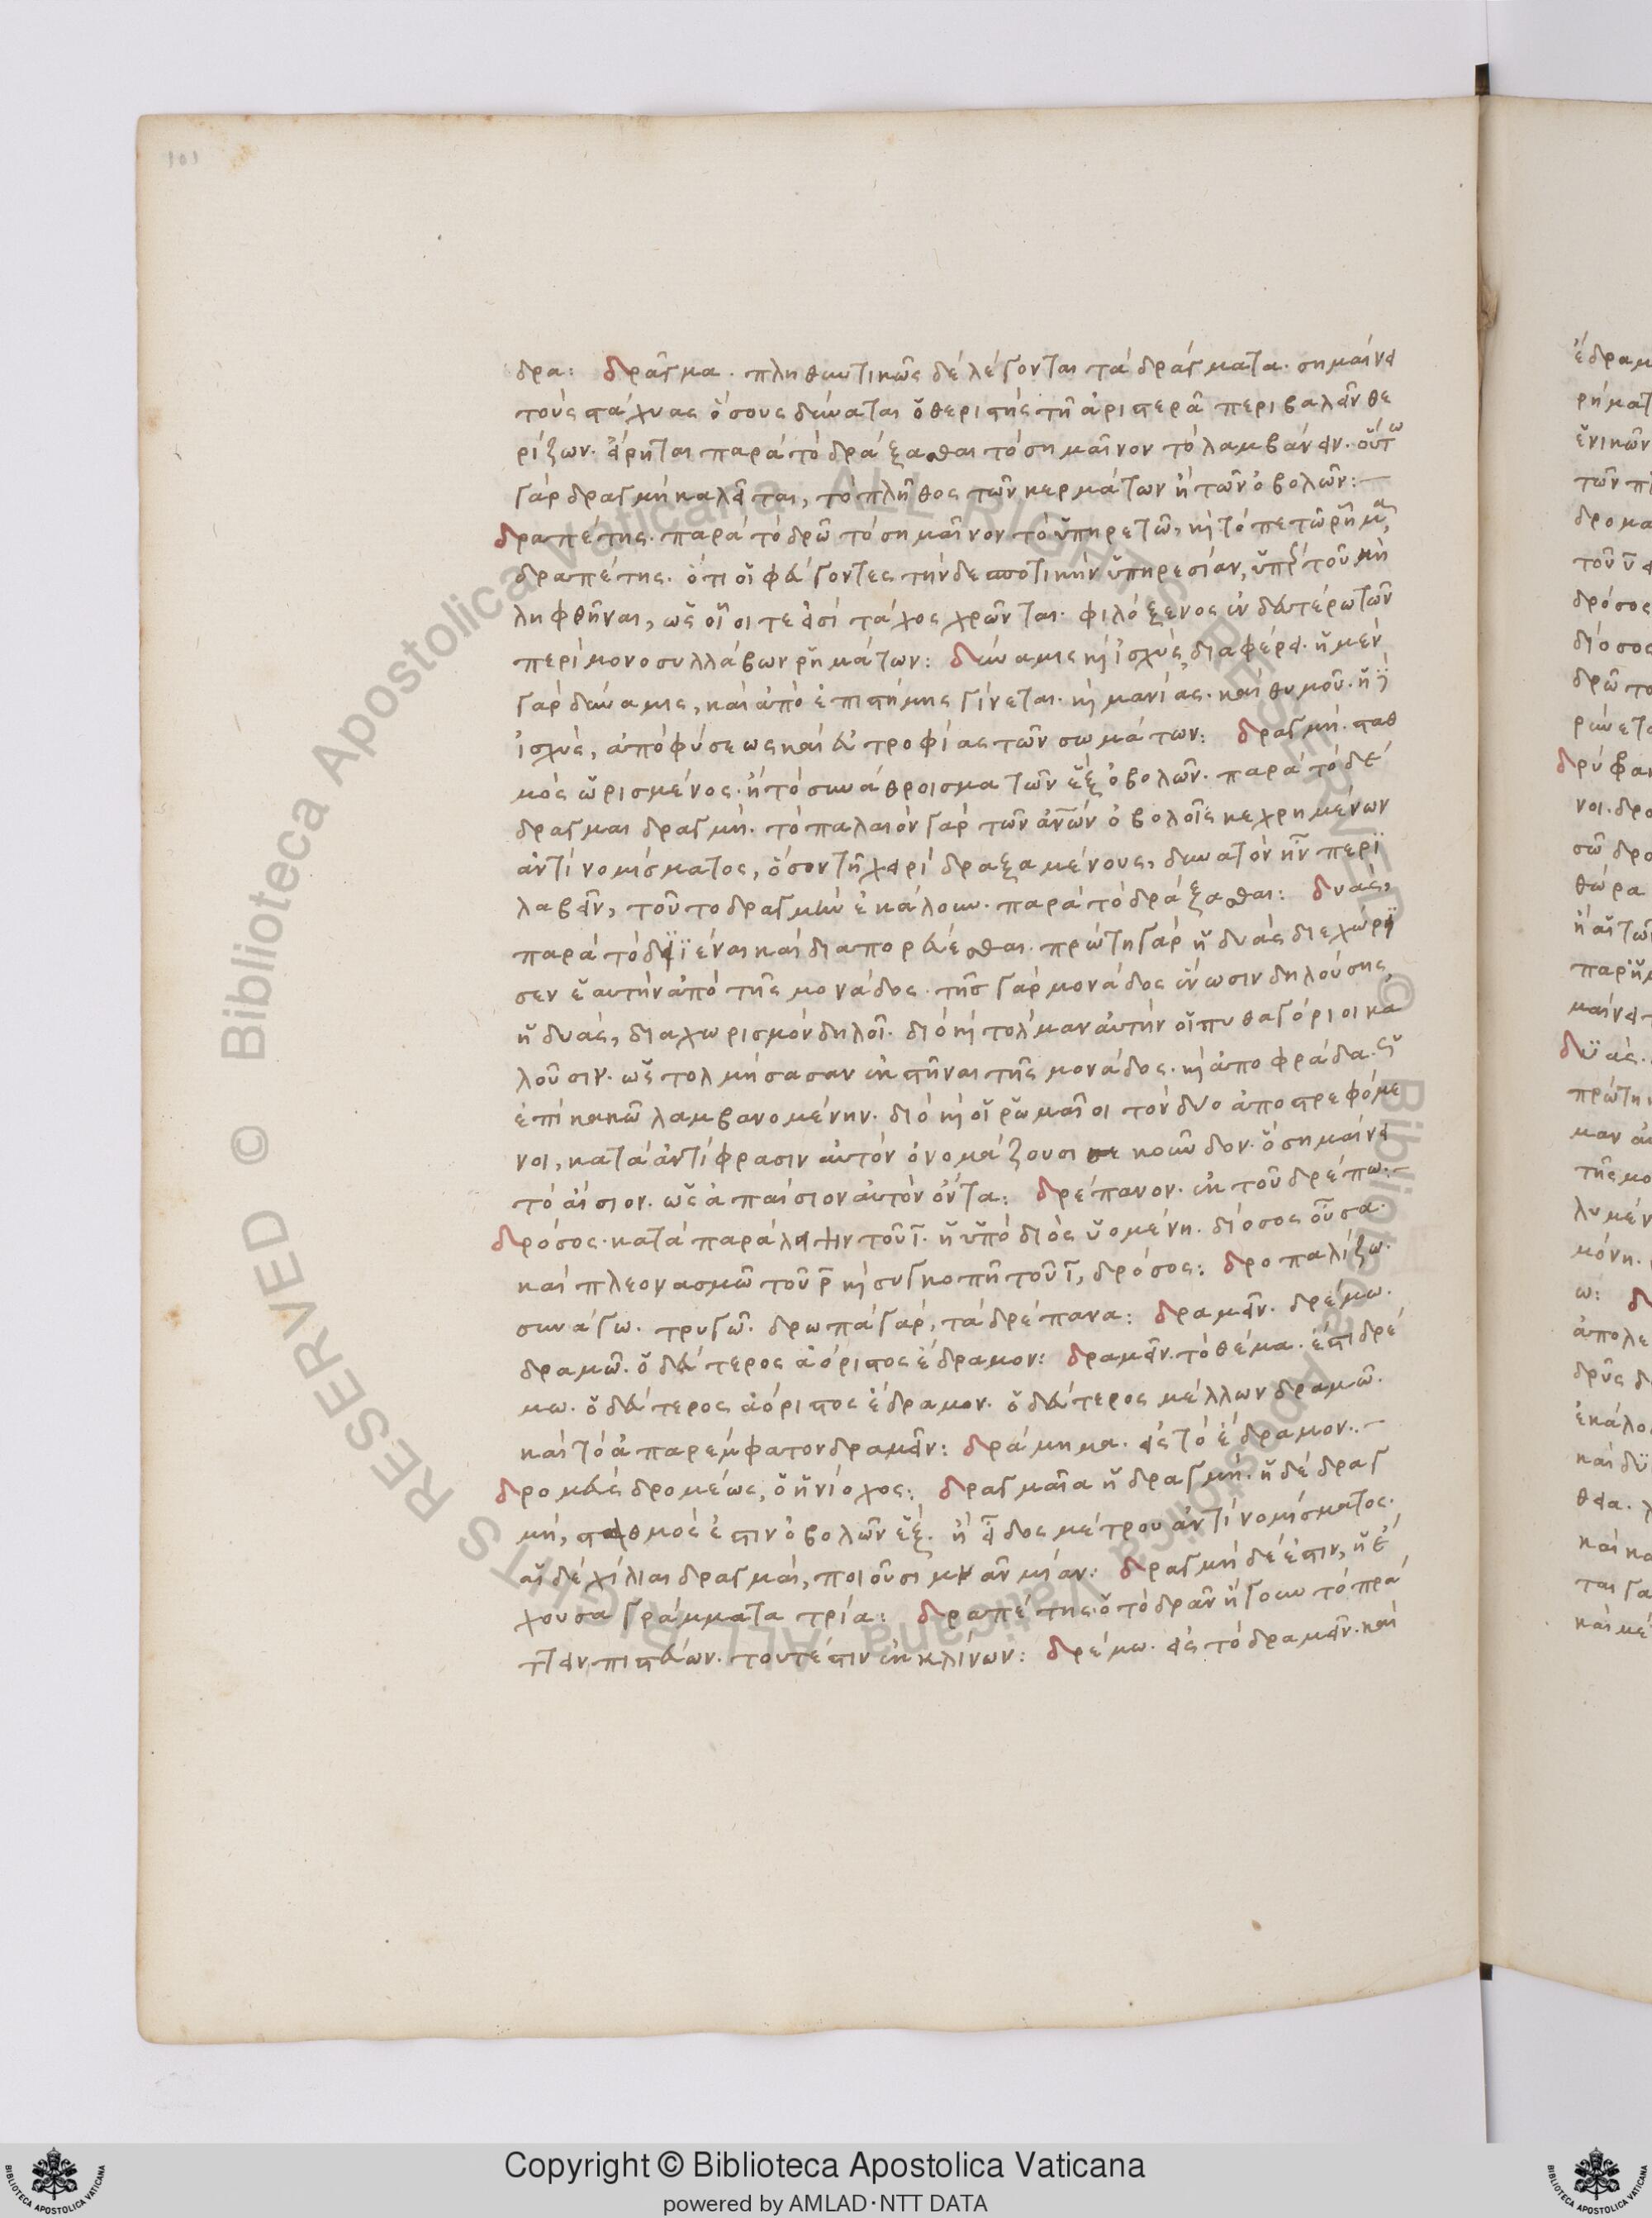 101
δρα: δράγμα. πληθυντικῶς δὲ λέγονται τὰ δράγματα. σημαίνει
τοὺς στάχυας ὅσους δύναται ὁ θεριστὴς τῇ ἀριστερᾷ περιβαλεῖν θε
ρίζων. εἴρηται παρὰ τὸ δράξασθαι τὸ σημαῖνον τὸ λαμβάνειν. οὕτω
γὰρ δραγμὴ καλεῖται, τὸ πλῆθος τῶν κερμάτων ἢ τῶν ὀβολῶν:
δραπέτης. παρὰ τὸ δρῶ τὸ σημαῖνον τὸ ὑπηρετῶ, κὶ τὸ πετῶ ῥῆμα,
δραπέτης. ὅτι οἱ φεύγοντες τὴν δεσποτικὴν ὑπηρεσίαν, ὑπὲρ τοῦ μὴ
ληφθῆναι, ὡς οἷοι τε εἰσὶ τάχος χρῶνται. φιλόξενος ἐν δευτέρω τῶν
περὶ μονοσυλλάβων ῥημάτων: δύναμις κὶ ἰσχὺς, διαφέρει. ἡ μὲν
γὰρ δύναμις, καὶ ἀπὸ ἐπιστήμης γίνεται. κὶ μανίας. καὶ θυμοῦ. ἡ δὲ
ἰσχὺς, ἀπὸ φύσεως καὶ εὐτροφίας τῶν σωμάτων: δραγμὴ. σταθ
μὸς ὡρισμένος. ἢ τὸ συνάθροισμα τῶν ἓξ ὀβολῶν. παρὰ τὸ δὲ
δραγμαι δραγμή. τὸ παλαιὸν γὰρ τῶν ἀνῶν ὀβολοῖς κεχρημένων
ἀντὶ νομίσματος, ὅσον τῇ χειρὶ δραξαμένους, δυνατὸν ἦν περι
λαβεῖν, τοῦτο δραγμὴν ἐκάλουν. παρὰ τὸ δράξασθαι: δυάς,
παρὰ τὸ διϊέναι καὶ διαπορεύεσθαι. πρώτη γὰρ ἡ δυὰς διεχώρι
σεν ἑαυτὴν ἀπὸ τῆς μονάδος. τῆς γὰρ μονάδος ἕνωσιν δηλούσης,
ἡ δυὰς, διαχωρισμὸν δηλοῖ. διὸ κὶ τολίμαν αὐτὴν οἱ πυθαγόριοι κα
λοῦσιν. ὡς τολμήσασαν ἐκστῆναι τῆς μονάδος. κὶ ἀποφράδα.
ἐπὶ κακῶ λαμβανομένην. διὸ κὶ οἱ ῥωμαῖοι τὸν δυο ἀποστρεφόμε
νοι, κατὰ ἀντίφρασιν αὐτὸν ὀνομάζουσι κουνδον. ὃ σημαίνει
τὸ αἴσιον. ὡς ἀπαίσιον αὐτὸν ὄντα: δρέπανον. ἐκ τοῦ δρέπω:
δρόσος. κατὰ παράλειψιν τοῦ ι. ἡ ὑπὸ διὸς ὑομένη. δίοσος οὖσα.
καὶ πλεονασμῶ τοῦ ρ κὶ συγκοπῇ τοῦ ι, δρόσος: δροπαλίζω.
συνάγω. τρυγῶ. δρωπὰ γὰρ, τὰ δρέπανα: δραμεῖν. δρέμω.
δραμῶ. ὁ δεύτερος ἀόριστος ἔδραμον: δραμεῖν. τὸ θέμα. ἐστὶ δρέ
μω. ὁ δεύτερος ἀόριστος ἔδραμον. ὁ δεύτερος μέλλων δραμῶ.
καὶ τὸ ἀπαρέμφατον δραμεῖν: δράμημα. εἰς τὸ ἔδραμον:
δρομεὺς δρομέως, ὁ ἡνίοχος: δραγμαῖα ἡ δραγμή. ἡ δὲ δραγ
μὴ, σταθμός ἐστιν ὀβολῶν ἕξ. ἢ εἶδος μέτρου ἀντὶ νομίσματος.
αἱ δὲ χίλιαι δραγμαὶ, ποιοῦσι μνᾶν μίαν: δραγμὴ δέ ἐστιν, ἡ ἔ
χουσα γράμματα τρία: δραπέτης. ὁ τὸ δρᾶν ἤγουν τὸ πρά
ττειν πιστεύων. τουτέστιν ἐκκλίνων: δρέμω. εἰς τὸ δραμεῖν. καὶ
Biblioteca Apostolica Vaticana ALL RIGHTS RESERVED ©
Copyright © Biblioteca Apostolica Vaticana
powered by AMLAD·NTT DATA